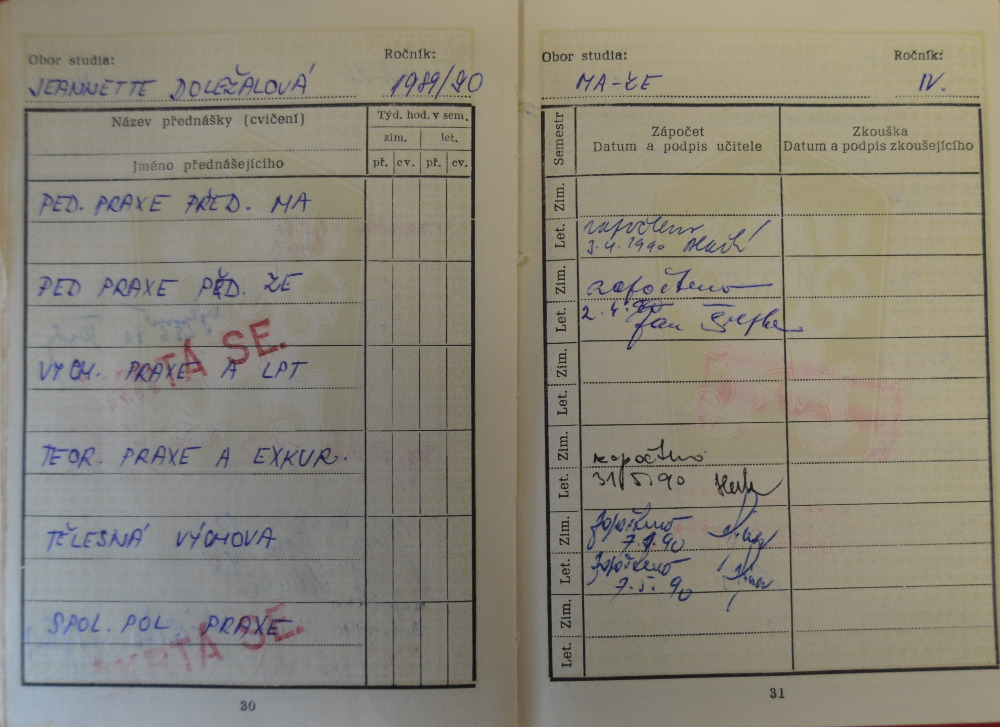 Obor studia: Ročník:
JEANNETTE DOLEŽALOVÁ 1989/90
Název přednášky (cvičení) Týd. hod. v sem.
zim. let.
Jméno přednášejícího př. cv. př. cv.
PED. PRAXE PŘED. MA
PED PRAXE PŘD. ZE
VÝCH. PRAXE A LPT
TEOR. PRAXE A EXKUR.
TĚLESNÁ VÝCHOVA
SPOL. POL PRAXE
RTÁ SE.
KRTÁ SE.
30
Obor studia: Ročník:
MA-ZE IV.
Semestr Zápočet Zkouška
Datum a podpis učitele Datum a podpis zkoušejícího
Zim.
Let. započteno
3.4.1990
Zim. započteno
Let. 2.4.90 Jan
Zim.
Let.
Zim. započteno
Let. 31/5/90
Zim. Započteno
7.1.90
Let. Započteno
7.5.90
Zim.
Let.
31